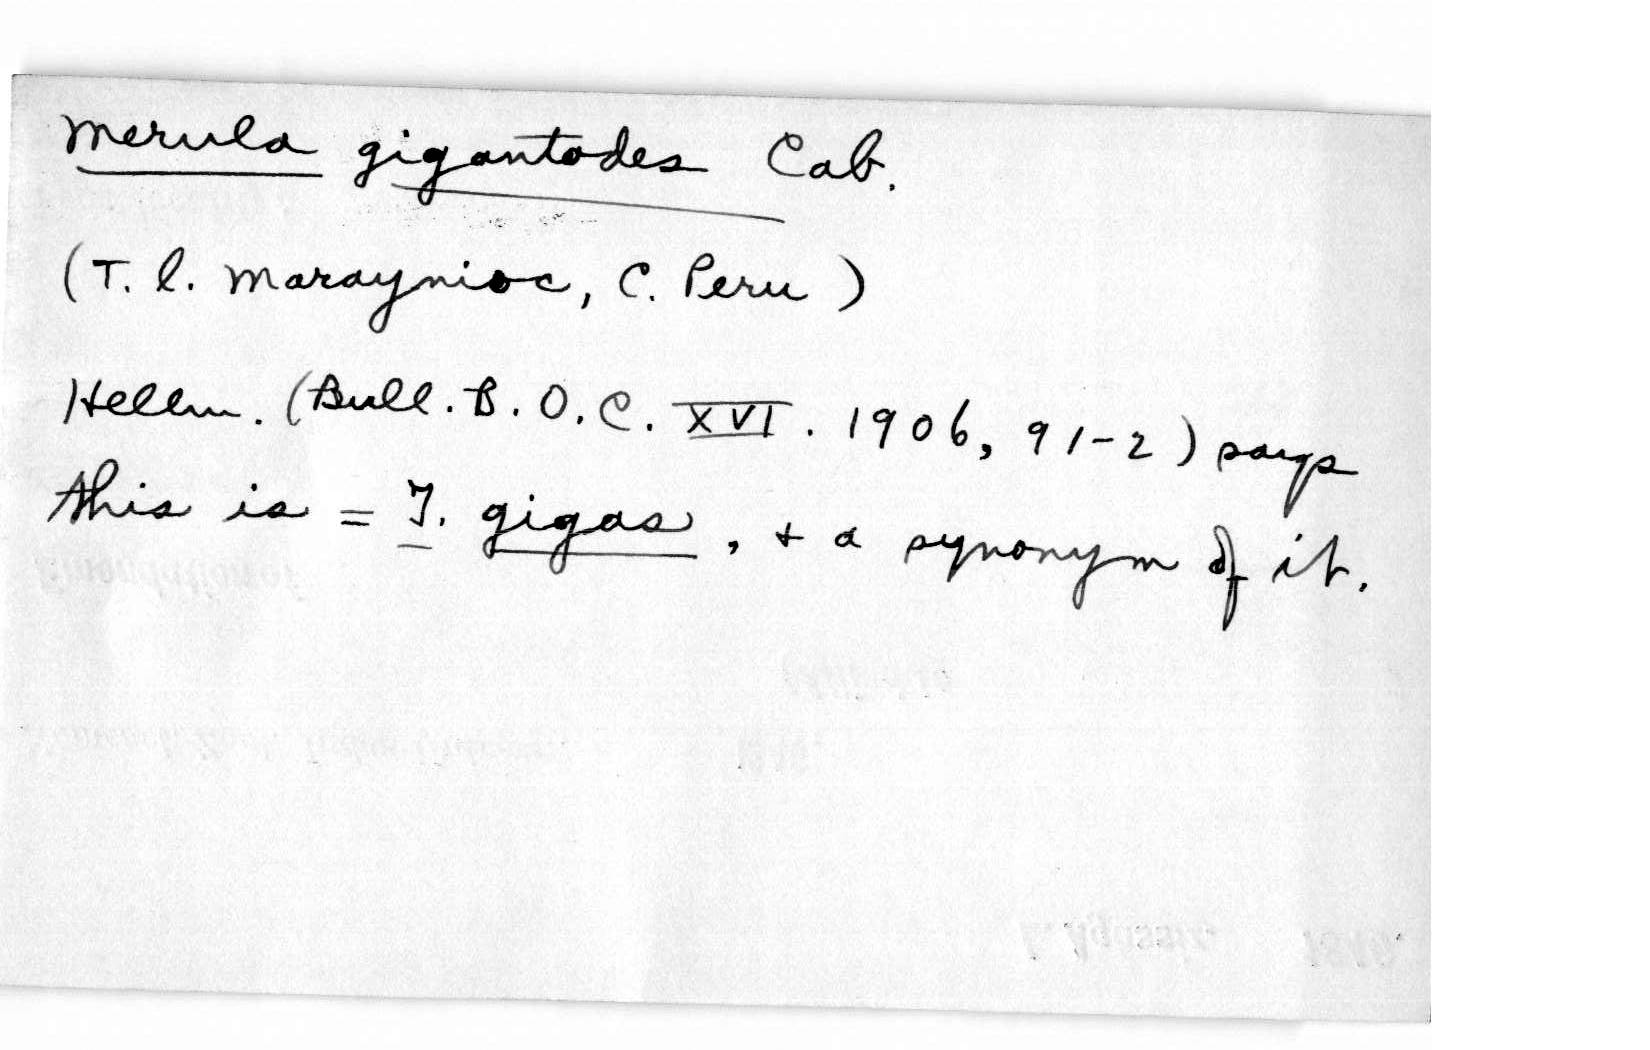 Merula gigantodes Cab.
(T. l. Maraynioc, C. Peru)
Hellm. (Bull. B. O. C. XVI. 1906, 91-2) says
this is = T. gigas, + a synonym of it.
L. Agassiz. 1846.